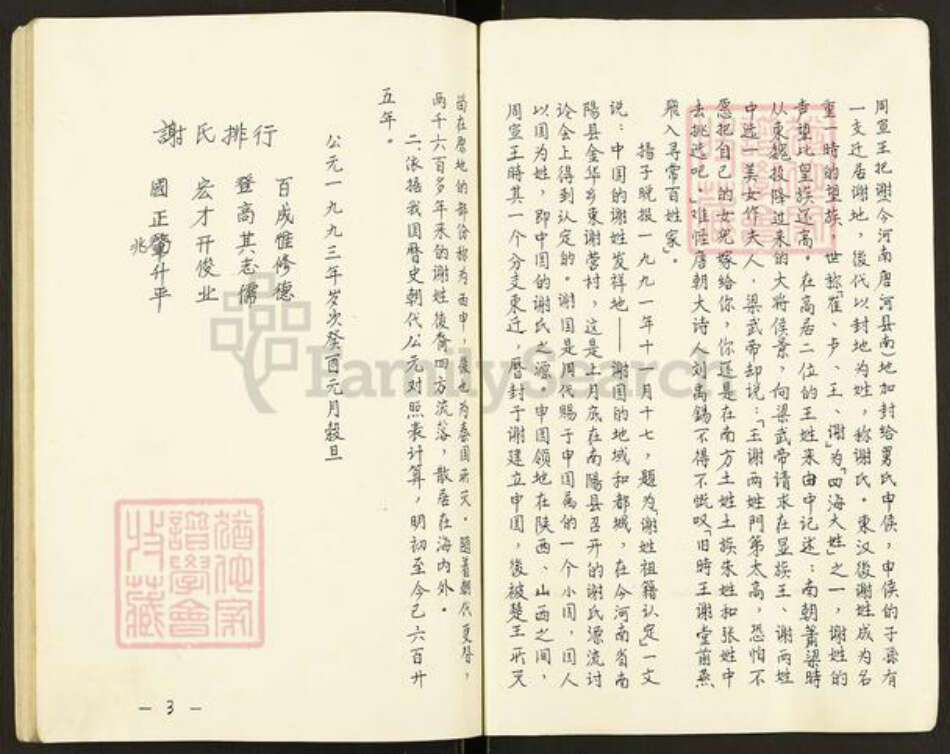 周宣王把谢(今河南唐河县南)地加封给舅氏申侯,申侯的子孫有
一支迁居谢地,後代以封地为姓,称谢氏。東汉後谢姓成为名
重一時的望族,世称「崔、卢、王、谢」为「四海大姓」之一,谢姓的
声望比皇族还高。在高居二位的王姓来由中记述:南朝蕭梁時
从東魏投降过来的大将侯景,向梁武帝请求在显族王、谢两姓
中选一美女作夫人,梁武帝却说:「王谢两姓門第太高,恐怕不
愿把自己的女兒嫁给你,你还是在南方土姓土族朱姓和张姓中
去挑选吧。」难怪唐朝大诗人刘禹錫不得不慨叹「旧時王谢堂前燕
飛入寻常百姓家」。
揚子晚报一九九一年十一月十七,题为「谢姓祖籍认定」一文
说:中国的谢姓发祥地——谢国的地域和都城,在今河南省南
陽县金华乡東谢营村,这是上月底在南陽县召开的谢氏源流讨
论会上得到认定的。谢国是周代赐于申国属的一个小国,国人
以国为姓,即中国的谢氏之源。申国领地在陕西、山西之间,
周宣王時其一个分支東迁,曆封于谢建立申国,後被楚王所灭
留在原地的部份称为西申,後也为秦国所灭。随着朝代更替,
两千六百多年来的谢姓後裔四方流落,散居在海内外。
二、依据我国曆史朝代公元对照表计算,明初至今已六百廿
五年。
公元一九九三年岁次癸酉元月榖旦
謝氏排行
百成惟修德
登高其志儒
宏才开俊业
國正肇升平
兆
- 3 -
FamilySearch
猶他家
譜學會
收藏